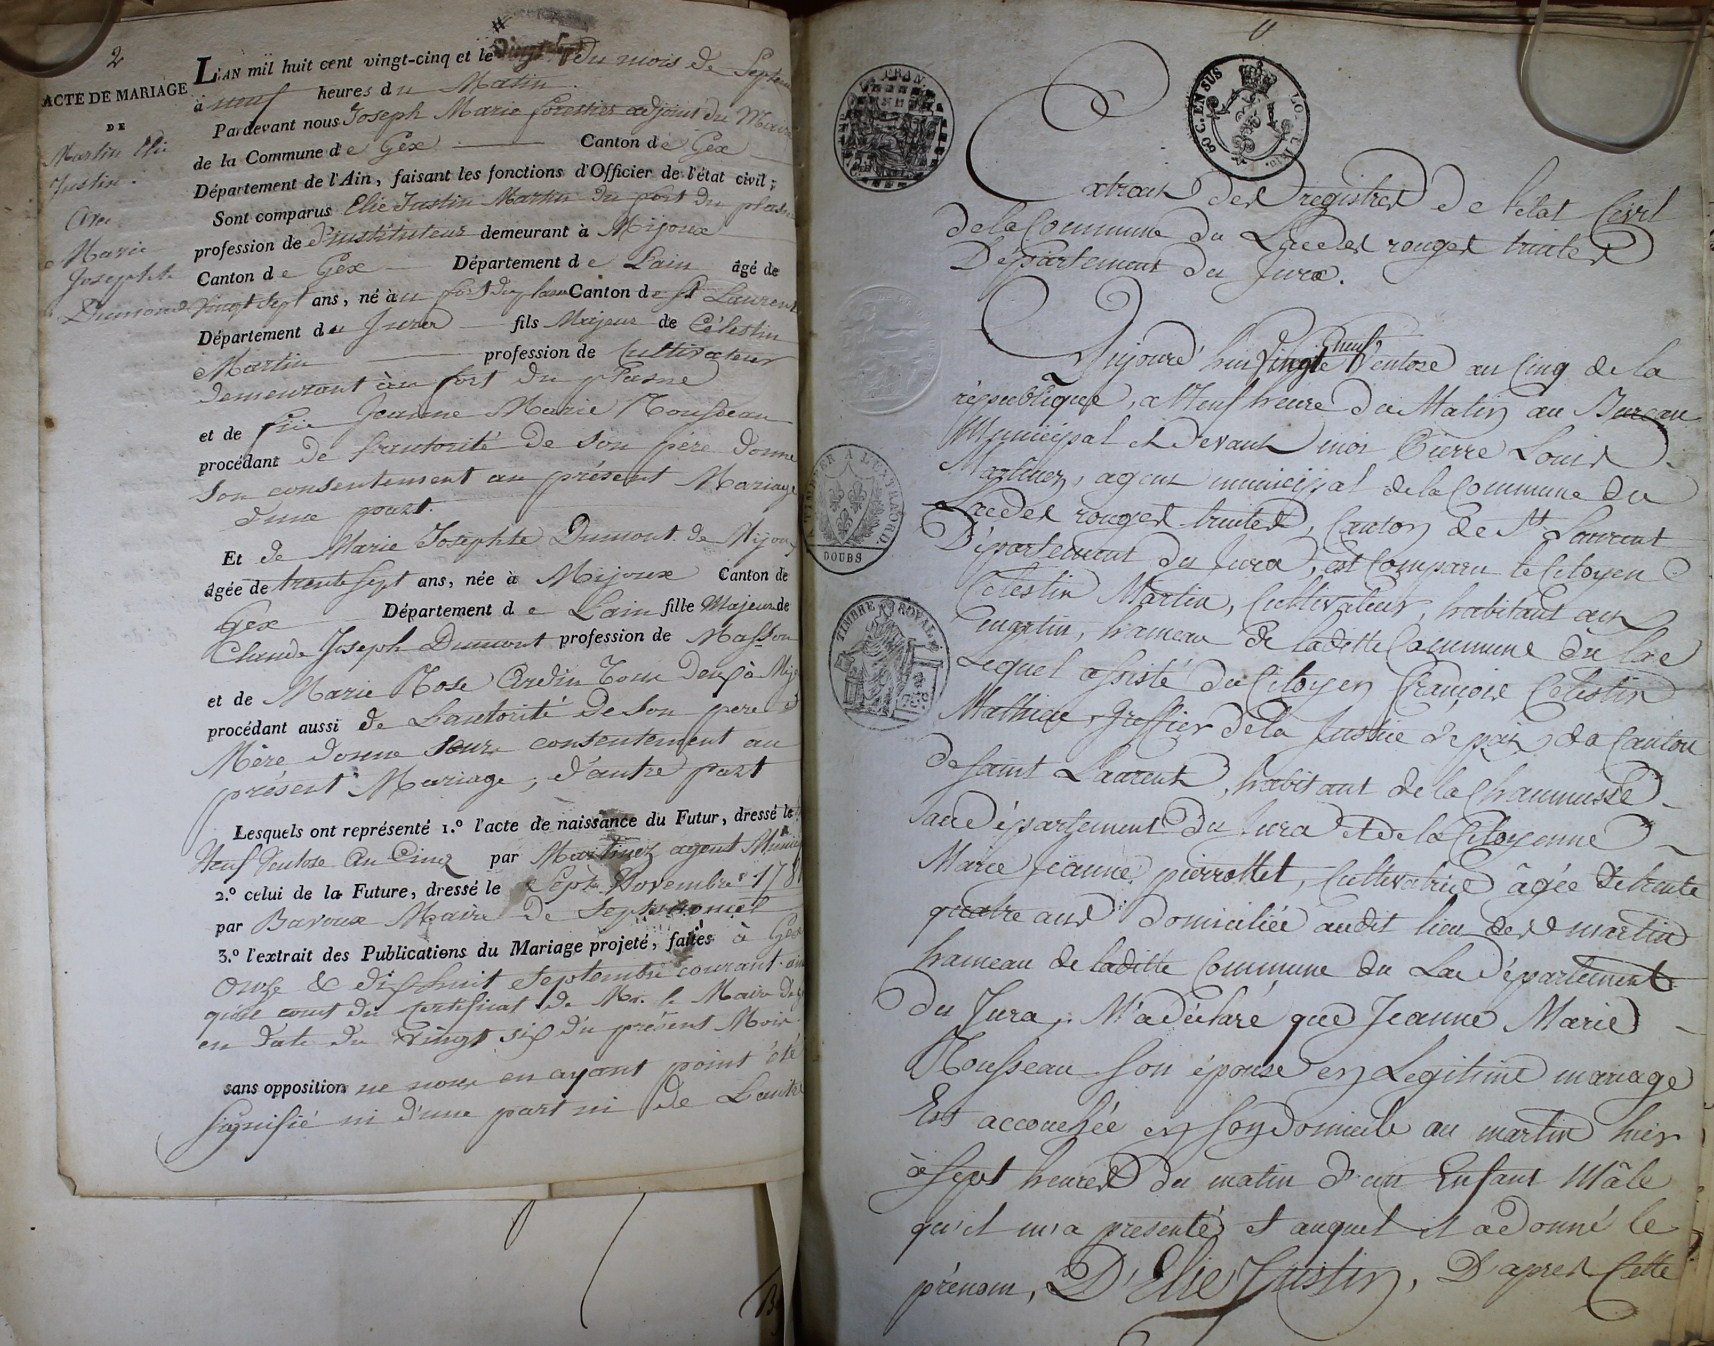 2
ACTE DE MARIAGE
DE
Martin Elie
Justin.
Avec
Marie
Josephte
Dumond
L'AN mil huit cent vingt-cinq et le vingt sept du mois de Septem
à neuf heures du Matin.
Pardevant nous Joseph Marie forestier adjoint du Maire
de la Commune de Gex Canton de Gex
Département de l'Ain, faisant les fonctions d'Officier de l'état civil;
Sont comparus Elie Justin Martin du fort du plasne
profession de d'instituteur demeurant à Mijoux
Canton de Gex Département de Lain âgé de
vingt sept ans, né à au fort du plasne Canton de St Laurent
Département du Jura fils Majeur de Célestin
Martin profession de Cultivateur
demeurant au fort du plasne
et de feue Jeanne Marie Rousseau
procédant de Lautorité de son père donne
son consentement au présent Mariage
d'une part.
Et de Marie Josephte Dumont de Mijoux
âgée de trente sept ans, née à Mijoux Canton de
Gex Département de Lain fille Majeur de
Claude Joseph Dumont profession de Masson
et de Marie Rose Grosfin tous deux à Mij
procédant aussi de Lautorité de son pere et
Mère donne leurs consentement au
présent Mariage, d'autre part
Lesquels ont représenté 1.º l'acte de naissance du Futur, dressé le
Neuf Ventose An Cinq par Martinez agent Munici
2.º celui de la Future, dressé le Sept Novembre 178
par Bavoux Maire de Septmoncel
3.º l'extrait des Publications du Mariage projeté, faites à Gex
Onze & dix huit Septembre courant
qu'il conste du certificat de Mr. le Maire de
en date du Vingt six du présent Mois
sans opposition ne nous en ayant point été
signifié ni d'une part ni de Lautre
TIMBRE A L'EXTRAORD.
DOUBS
TIMBRE ROYAL
60 C. EN SUS
Extrait des registres de l'état Civil
de la Commune du Lac des rouges truites
Département du Jura.
Aujourd'hui Vingt neuf Ventose an Cinq de la
république, a Neuf heure du Matin au Bureau
Municipal et devant moi Pierre Louis
Martinez, agent municipal de la Commune du
Lac des rouges truites, Canton de St Laurent
Département du Jura, est Comparu le Citoyen
Celestin Martin, Cultivateur, habitant au
martin, hameau de ladite Commune du Lac
Lequel assisté du Citoyen François Celestin
Mathieu, Greffier de la Justice de paix du Canton
de Saint Laurent, habitant de la Chaumusse
au département du Jura et de la Citoyenne
Marie Jeanne pierrottet, Cultivatrice âgée de trente
quatre ans domiciliée audit lieu des martin
hameau de ladite Commune du Lac Département
du Jura, M'a déclaré que Jeanne Marie
Rousseau Son épouse en Legitime mariage
Est accouchée en son domicile au martin hier
à sept heures du matin d'un Enfant Mâle
qu'il m'a présenté et auquel il a donné le
prénom, D'Elie Justin, D'après Cette